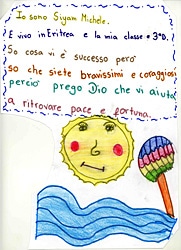 Io sono Siyam Michele.
E vivo in Eritrea e la mia classe è 3°D.
So cosa vi è successo però
so che siete bravissimi e coraggiosi
perciò prego Dio che vi aiuta
a ritrovare pace e fortuna.